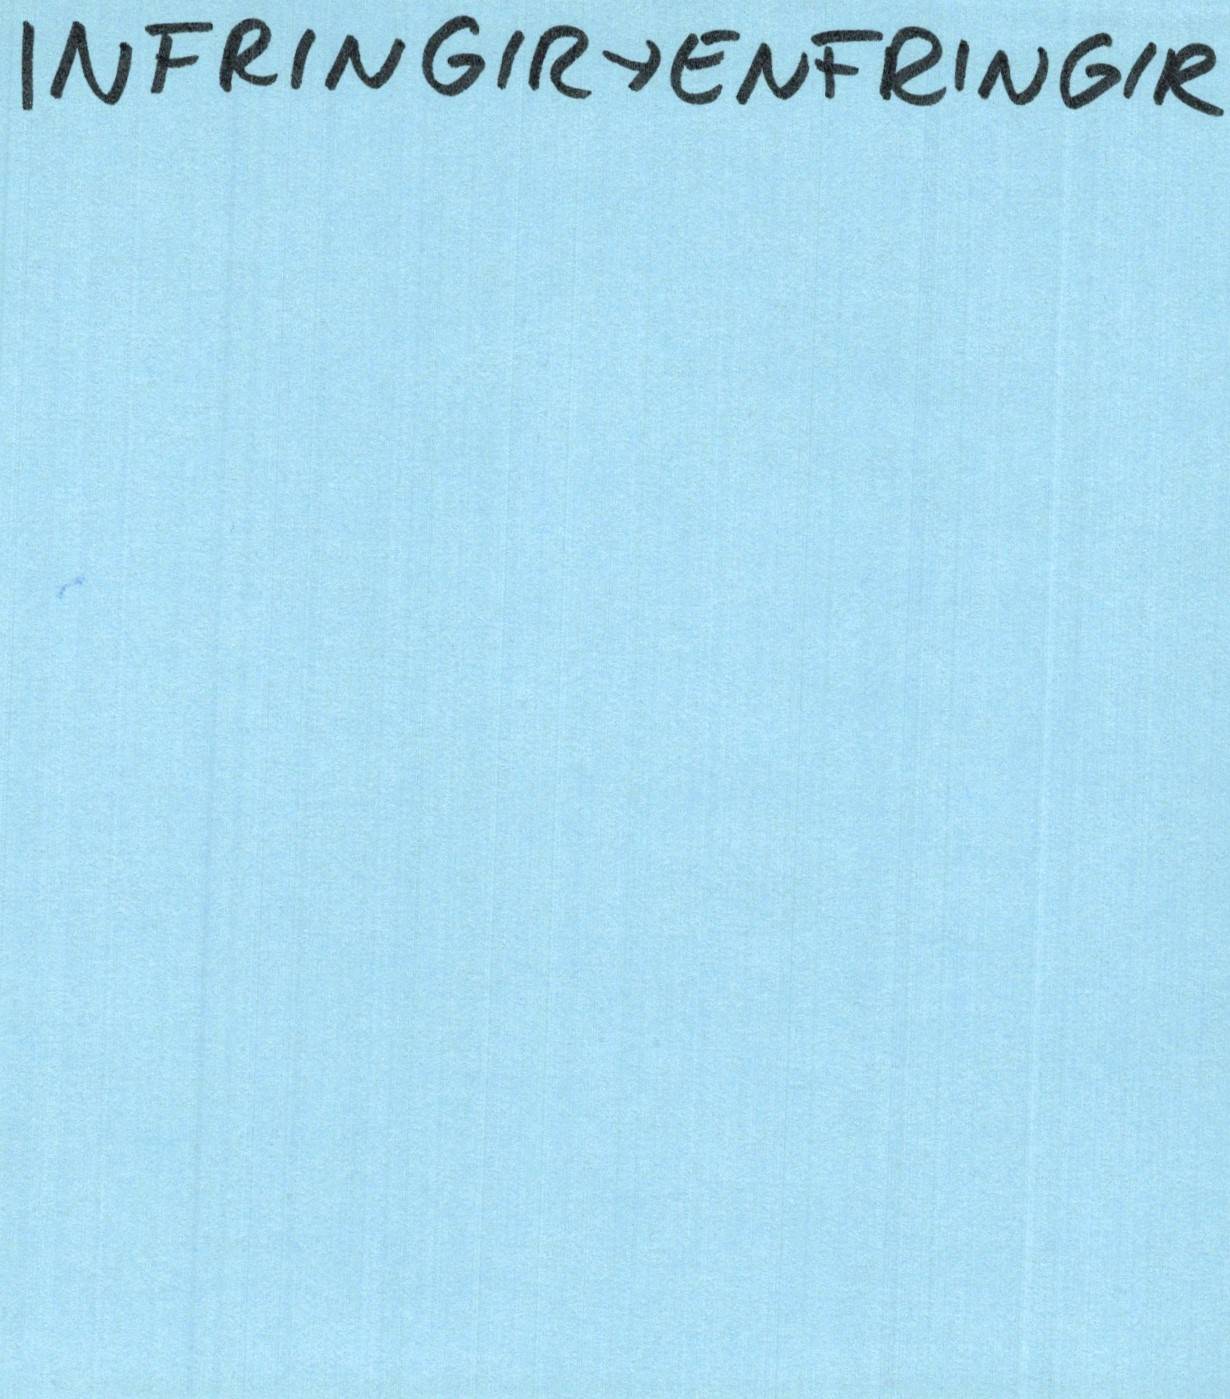 INFRINGIR→ENFRINGIR